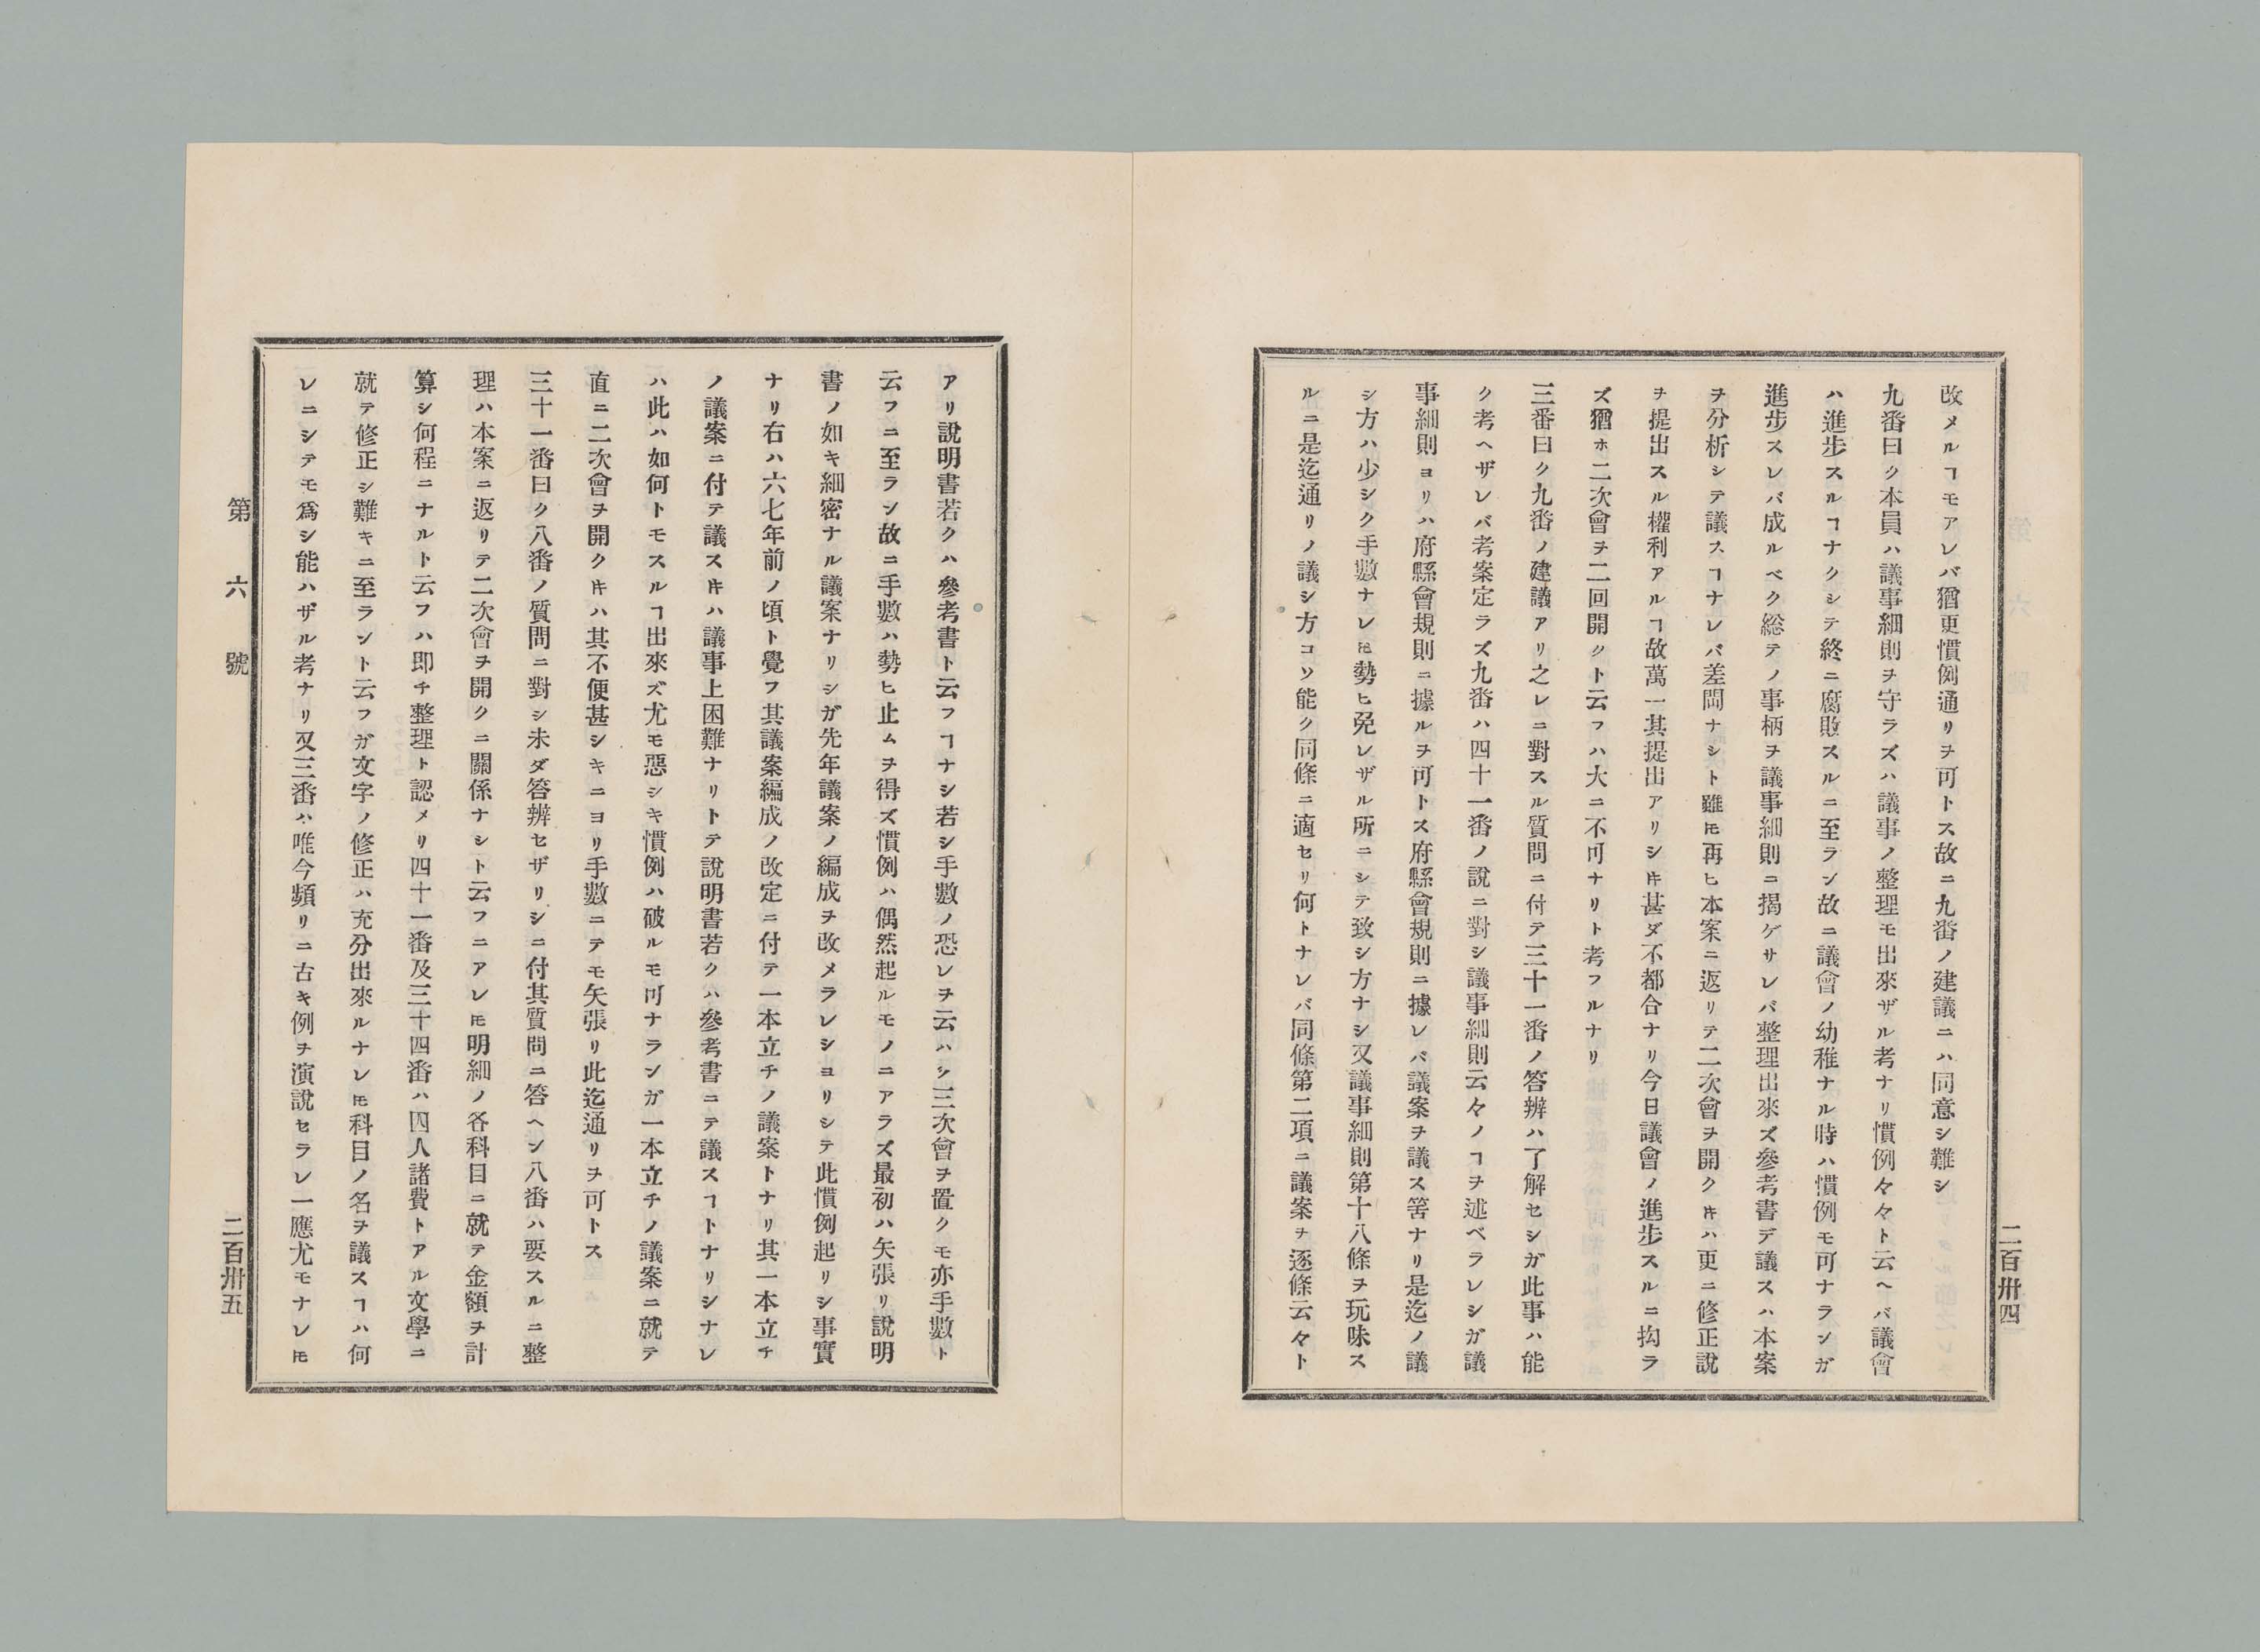 改メルヿモアレバ猶更慣例通リヲ可トス故ニ九番ノ建議ニハ同意シ難シ
九番曰ク本員ハ議事細則ヲ守ラズハ議事ノ整理モ出來ザル考ナリ慣例々々ト云ヘバ議會
ハ進步スルヿナクシテ終ニ腐敗スルニ至ラン故ニ議會ノ幼稚ナル時ハ慣例モ可ナランガ
進步スレバ成ルベク総テノ事柄ヲ議事細則ニ揭ゲサレバ整理出來ズ參考書デ議スハ本案
ヲ分析シテ議スヿナレバ差問ナシト雖𪜈再ヒ本案ニ返リテ二次會ヲ開クキハ更ニ修正說
ヲ提出スル權利アルヿ故萬一其提出アリシキ甚ダ不都合ナリ今日議會ノ進步スルニ拘ラ
ズ猶ホ二次會ヲ二回開クト云フハ大ニ不可ナリト考フルナリ
三番曰ク九番ノ建議アリ之レニ對スル質問ニ付テ三十一番ノ答辨ハ了解セシガ此事ハ能
ク考ヘザレバ考案定ラズ九番ハ四十一番ノ說ニ對シ議事細則云々ノヿヲ述ベラレシガ議
事細則ヨリハ府縣會規則ニ據ルヲ可トス府縣會規則ニ據レバ議案ヲ議ス筈ナリ是迄ノ議
シ方ハ少シク手數ナレ𪜈勢ヒ免レザル所ニシテ致シ方ナシ又議事細則第十八條ヲ玩味ス
ルニ是迄通リノ議シ方コソ能ク同條ニ適セリ何トナレバ同條第二項ニ議案ヲ逐條云々ト
二百卅四
アリ說明書若クハ參考書ト云フヿナシ若シ手數ノ恐レヲ云ハヾ三次會ヲ置クモ亦手數ト
云フニ至ラン故ニ手數ハ勢ヒ止ムヲ得ズ慣例ハ偶然起ルモノニアラズ最初ハ矢張リ說明
書ノ如キ細密ナル議案ナリシガ先年議案ノ編成ヲ改メラレシヨリシテ此慣例起リシ事實
ナリ右ハ六七年前ノ頃ト覺フ其議案編成ノ改定ニ付テ一本立チノ議案トナリ其一本立チ
ノ議案ニ付テ議スキハ議事上困難ナリトテ說明書若クハ參考書ニテ議スヿトナリシナレ
ハ此ハ如何トモスルヿ出來ズ尤モ惡シキ慣例ハ破ルモ可ナランガ一本立チノ議案ニ就テ
直ニ二次會ヲ開クキハ其不便甚シキニヨリ手數ニテモ矢張リ此迄通リヲ可トス
三十一番曰ク八番ノ質問ニ對シ未ダ答辨セザリシニ付其質問ニ答ヘン八番ハ要スルニ整
理ハ本案ニ返リテ二次會ヲ開クニ關係ナシト云フニアレ𪜈明細ノ各科目ニ就テ金額ヲ計
算シ何程ニナルト云フハ即チ整理ト認メリ四十一番及三十四番ハ囚人諸費トアル文學ニ
就テ修正シ難キニ至ラント云フガ文字ノ修正ハ充分出來ルナレ𪜈科目ノ名ヲ議スヿハ何
レニシテモ爲シ能ハザル考ナリ又三番ハ唯今頻リニ古キ例ヲ演說セラレ一應尤モナレ𪜈
第六號
二百卅五